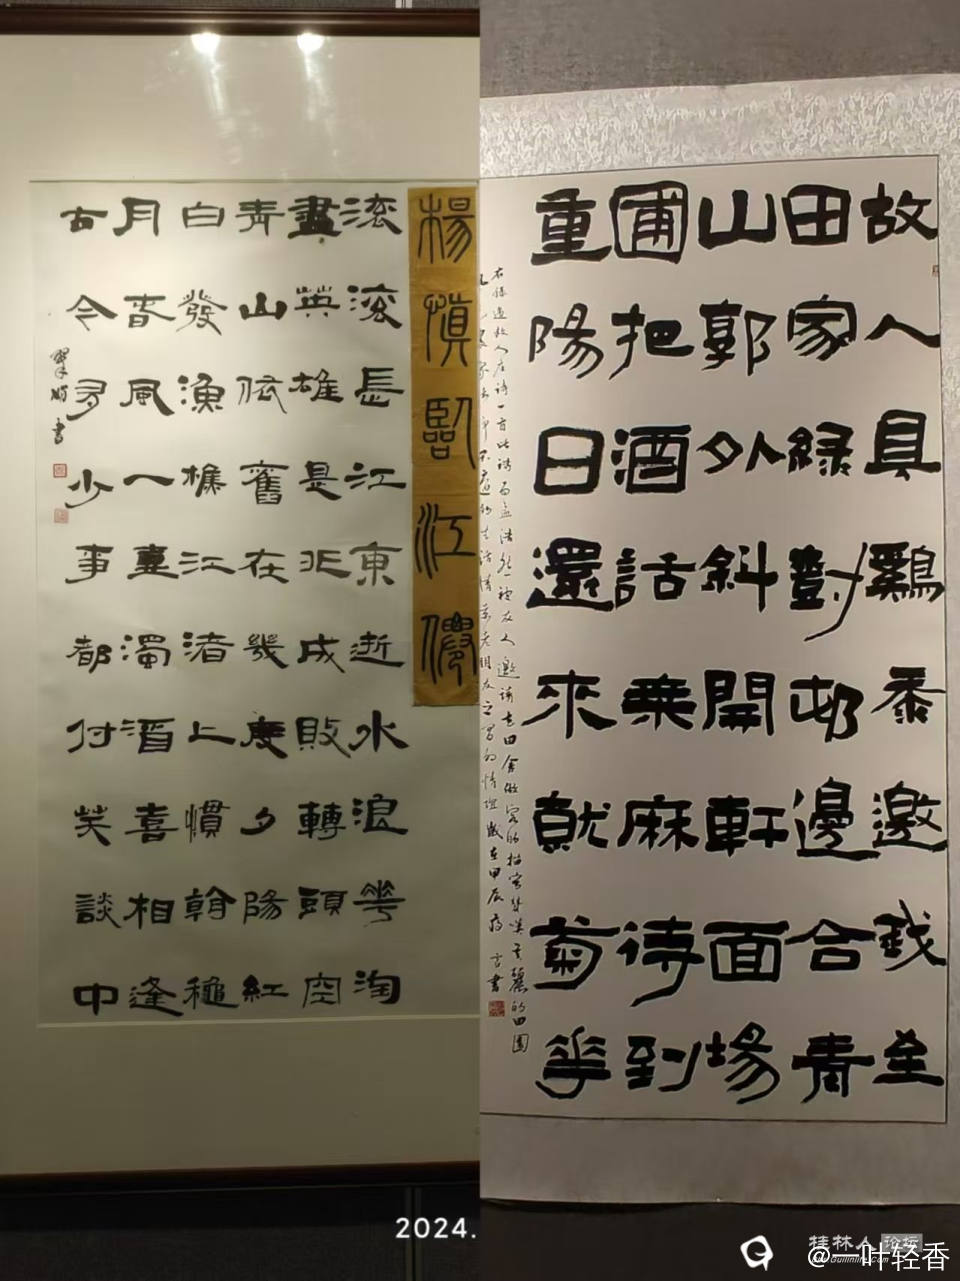 楊慎臨江僊
滚滚長江東逝水浪華淘
盡英雄是非成敗轉頭空
青山依舊在幾度夕陽紅
白發漁樵江渚上慣看穐
月春風一壺濁酒喜相逢
古今多少事都付笑談中
書
故人具鷄黍邀我至
田家綠對邨邊合青
山郭外斜開軒面場
圃把酒話桑麻待到
重陽日還來就菊華
右錄過故人庄詩一首此詩為孟浩然被友人邀請去田舍做客的描寫贊美美麗的田園
的生活情景老朋友之間的情誼歲在甲辰書
2024.
桂林人论坛
@一叶轻香